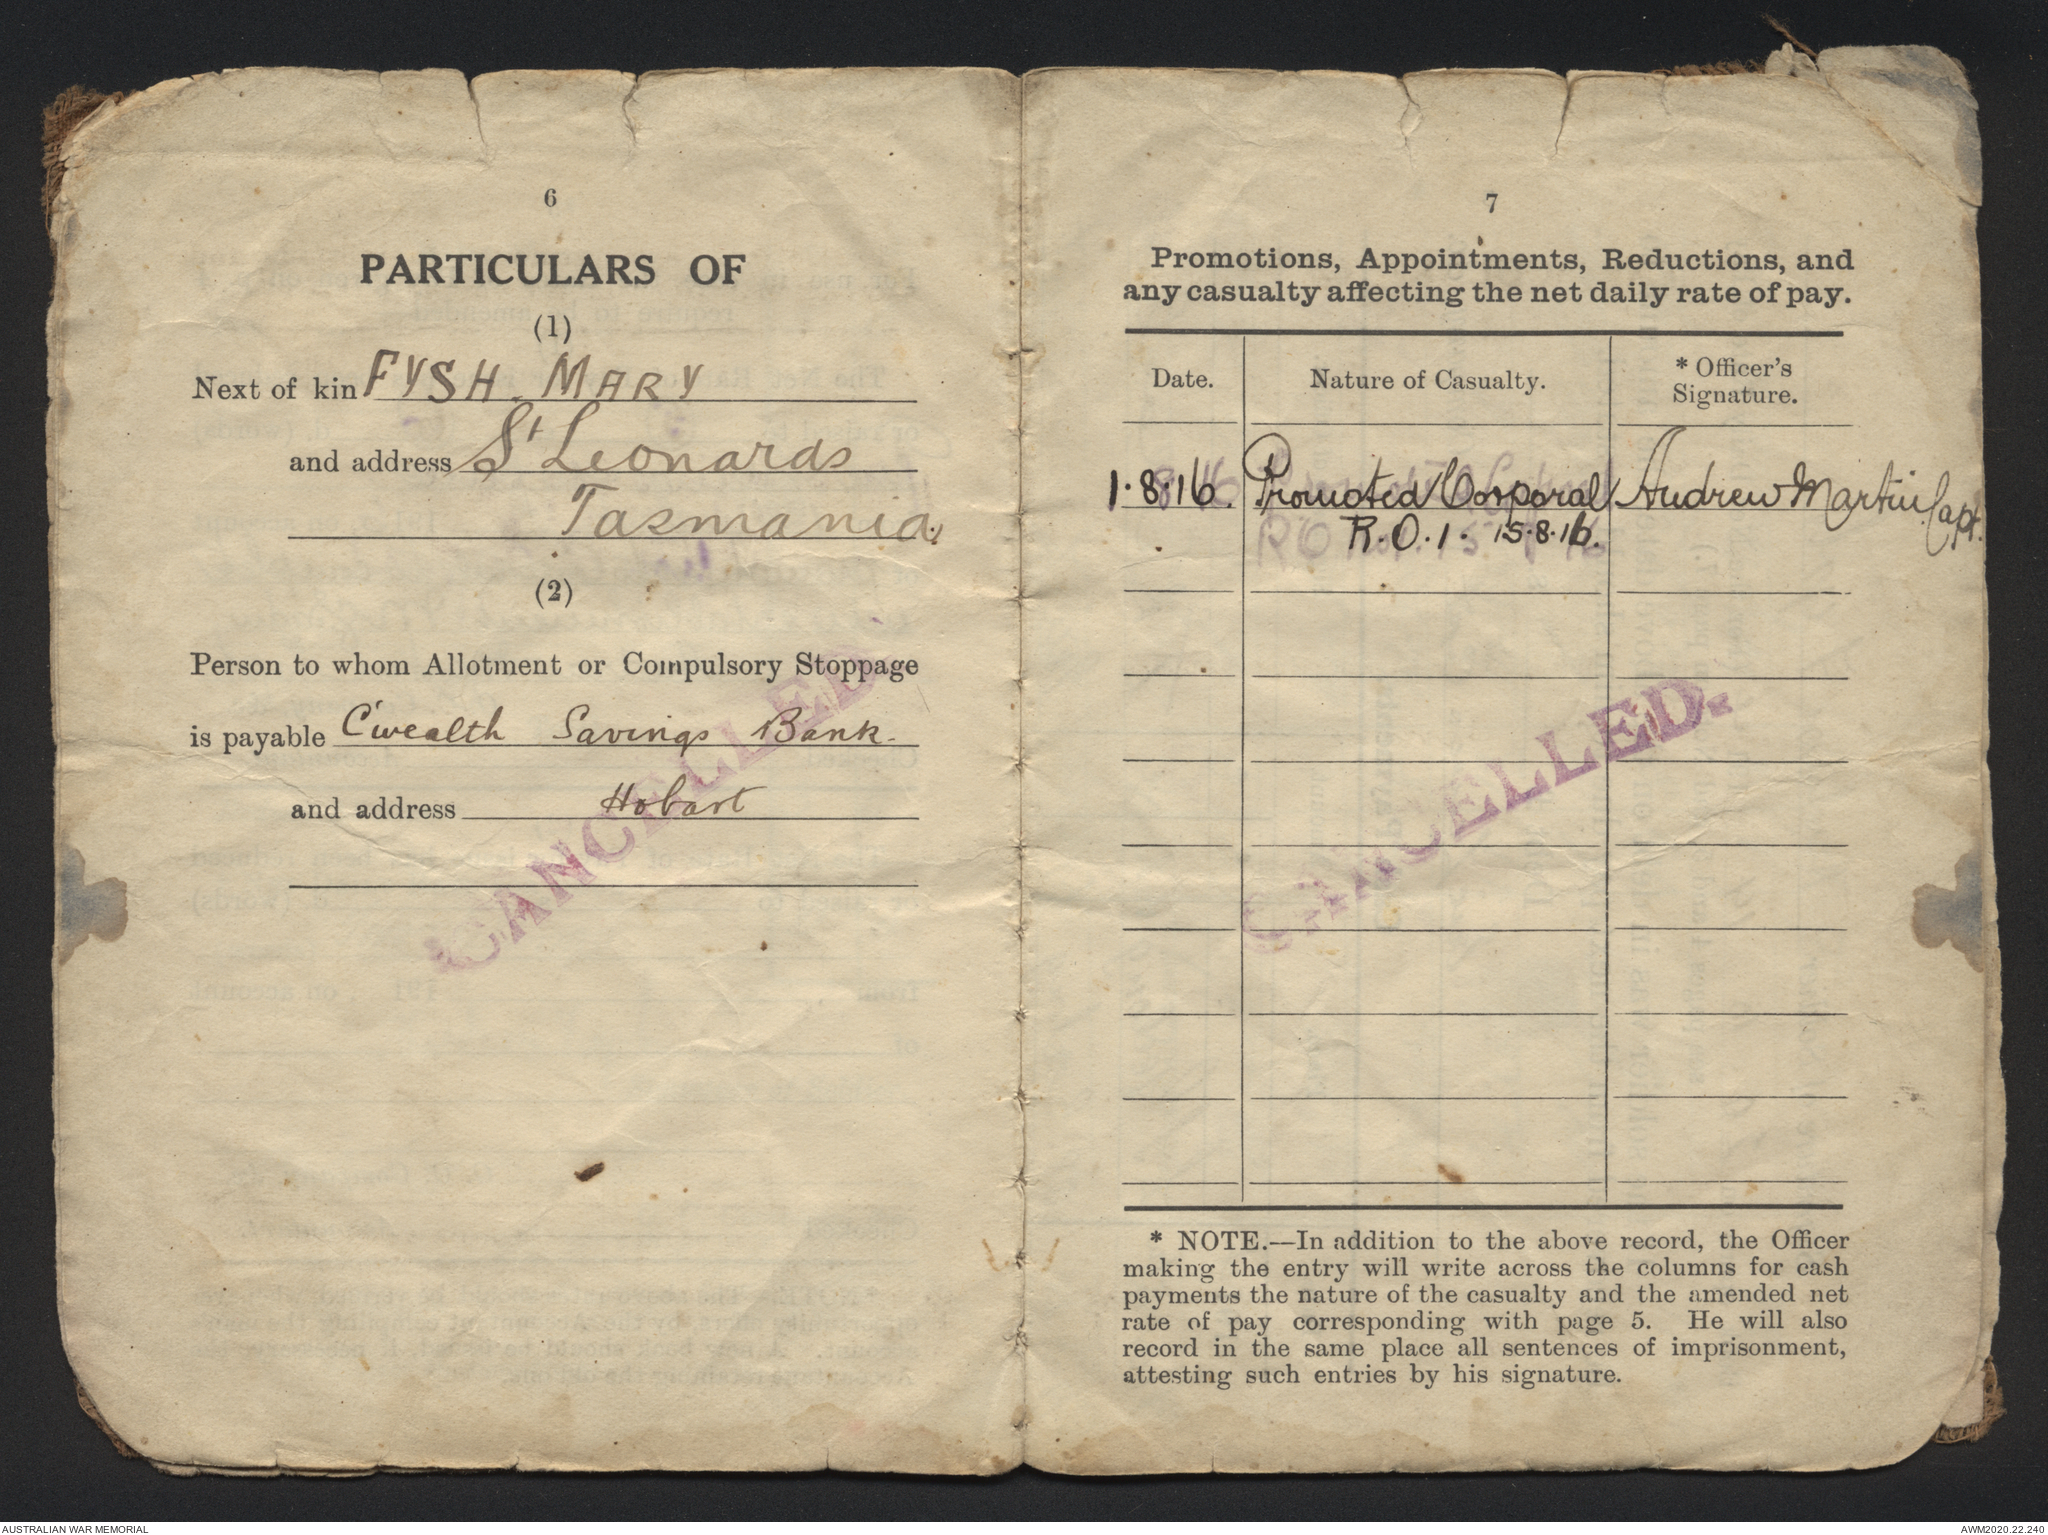 6
PARTICULARS OF
(1)
Next of kin FYSH. MARY
and address St Leonards
Tasmania.
(2)
Person to whom Allotment or Compulsory Stoppage
is payable C'wealth Savings Bank.
and address Hobart
CANCELLED.
7
Promotions, Appointments, Reductions, and
any casualty affecting the net daily rate of pay.
Date. Nature of Casualty. * Officer's
Signature.
1.8.16 Promoted Corporal Andrew Martin Capt.
R.O.1. 15.8.16.
CANCELLED.
* NOTE.—In addition to the above record, the Officer
making the entry will write across the columns for cash
payments the nature of the casualty and the amended net
rate of pay corresponding with page 5. He will also
record in the same place all sentences of imprisonment,
attesting such entries by his signature.
AUSTRALIAN WAR MEMORIAL
AWM2020.22.240